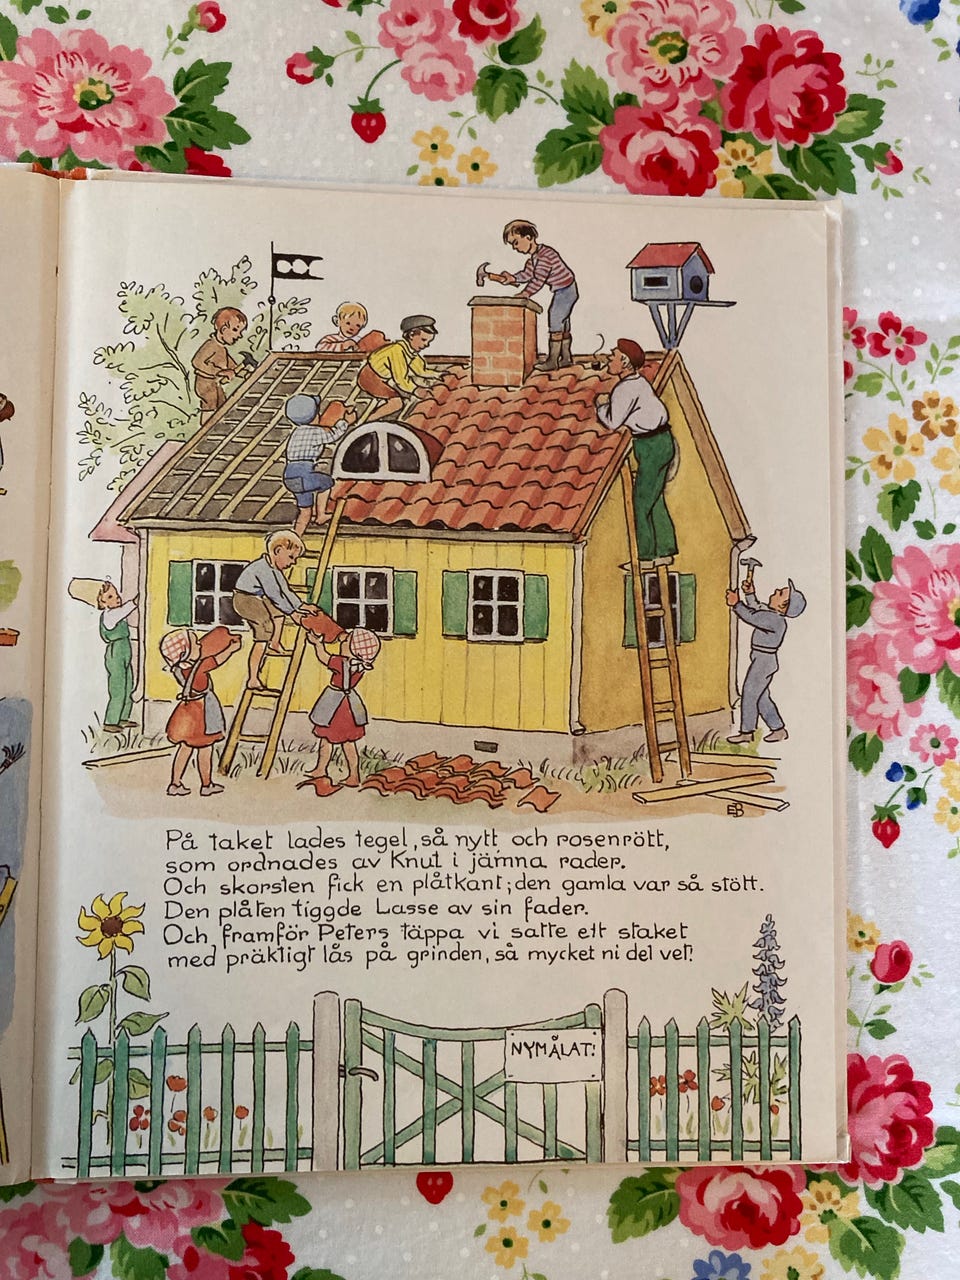 EB
På taket lades tegel, så nytt och rosenrött,
som ordnades av Knut i jämna rader.
Och skorsten fick en plåtkant; den gamla var så stött.
Den plåten tiggde Lasse av sin fader.
Och framför Peters täppa vi satte ett staket
med präktigt lås på grinden, så mycket ni det vet!
NYMÅLAT!